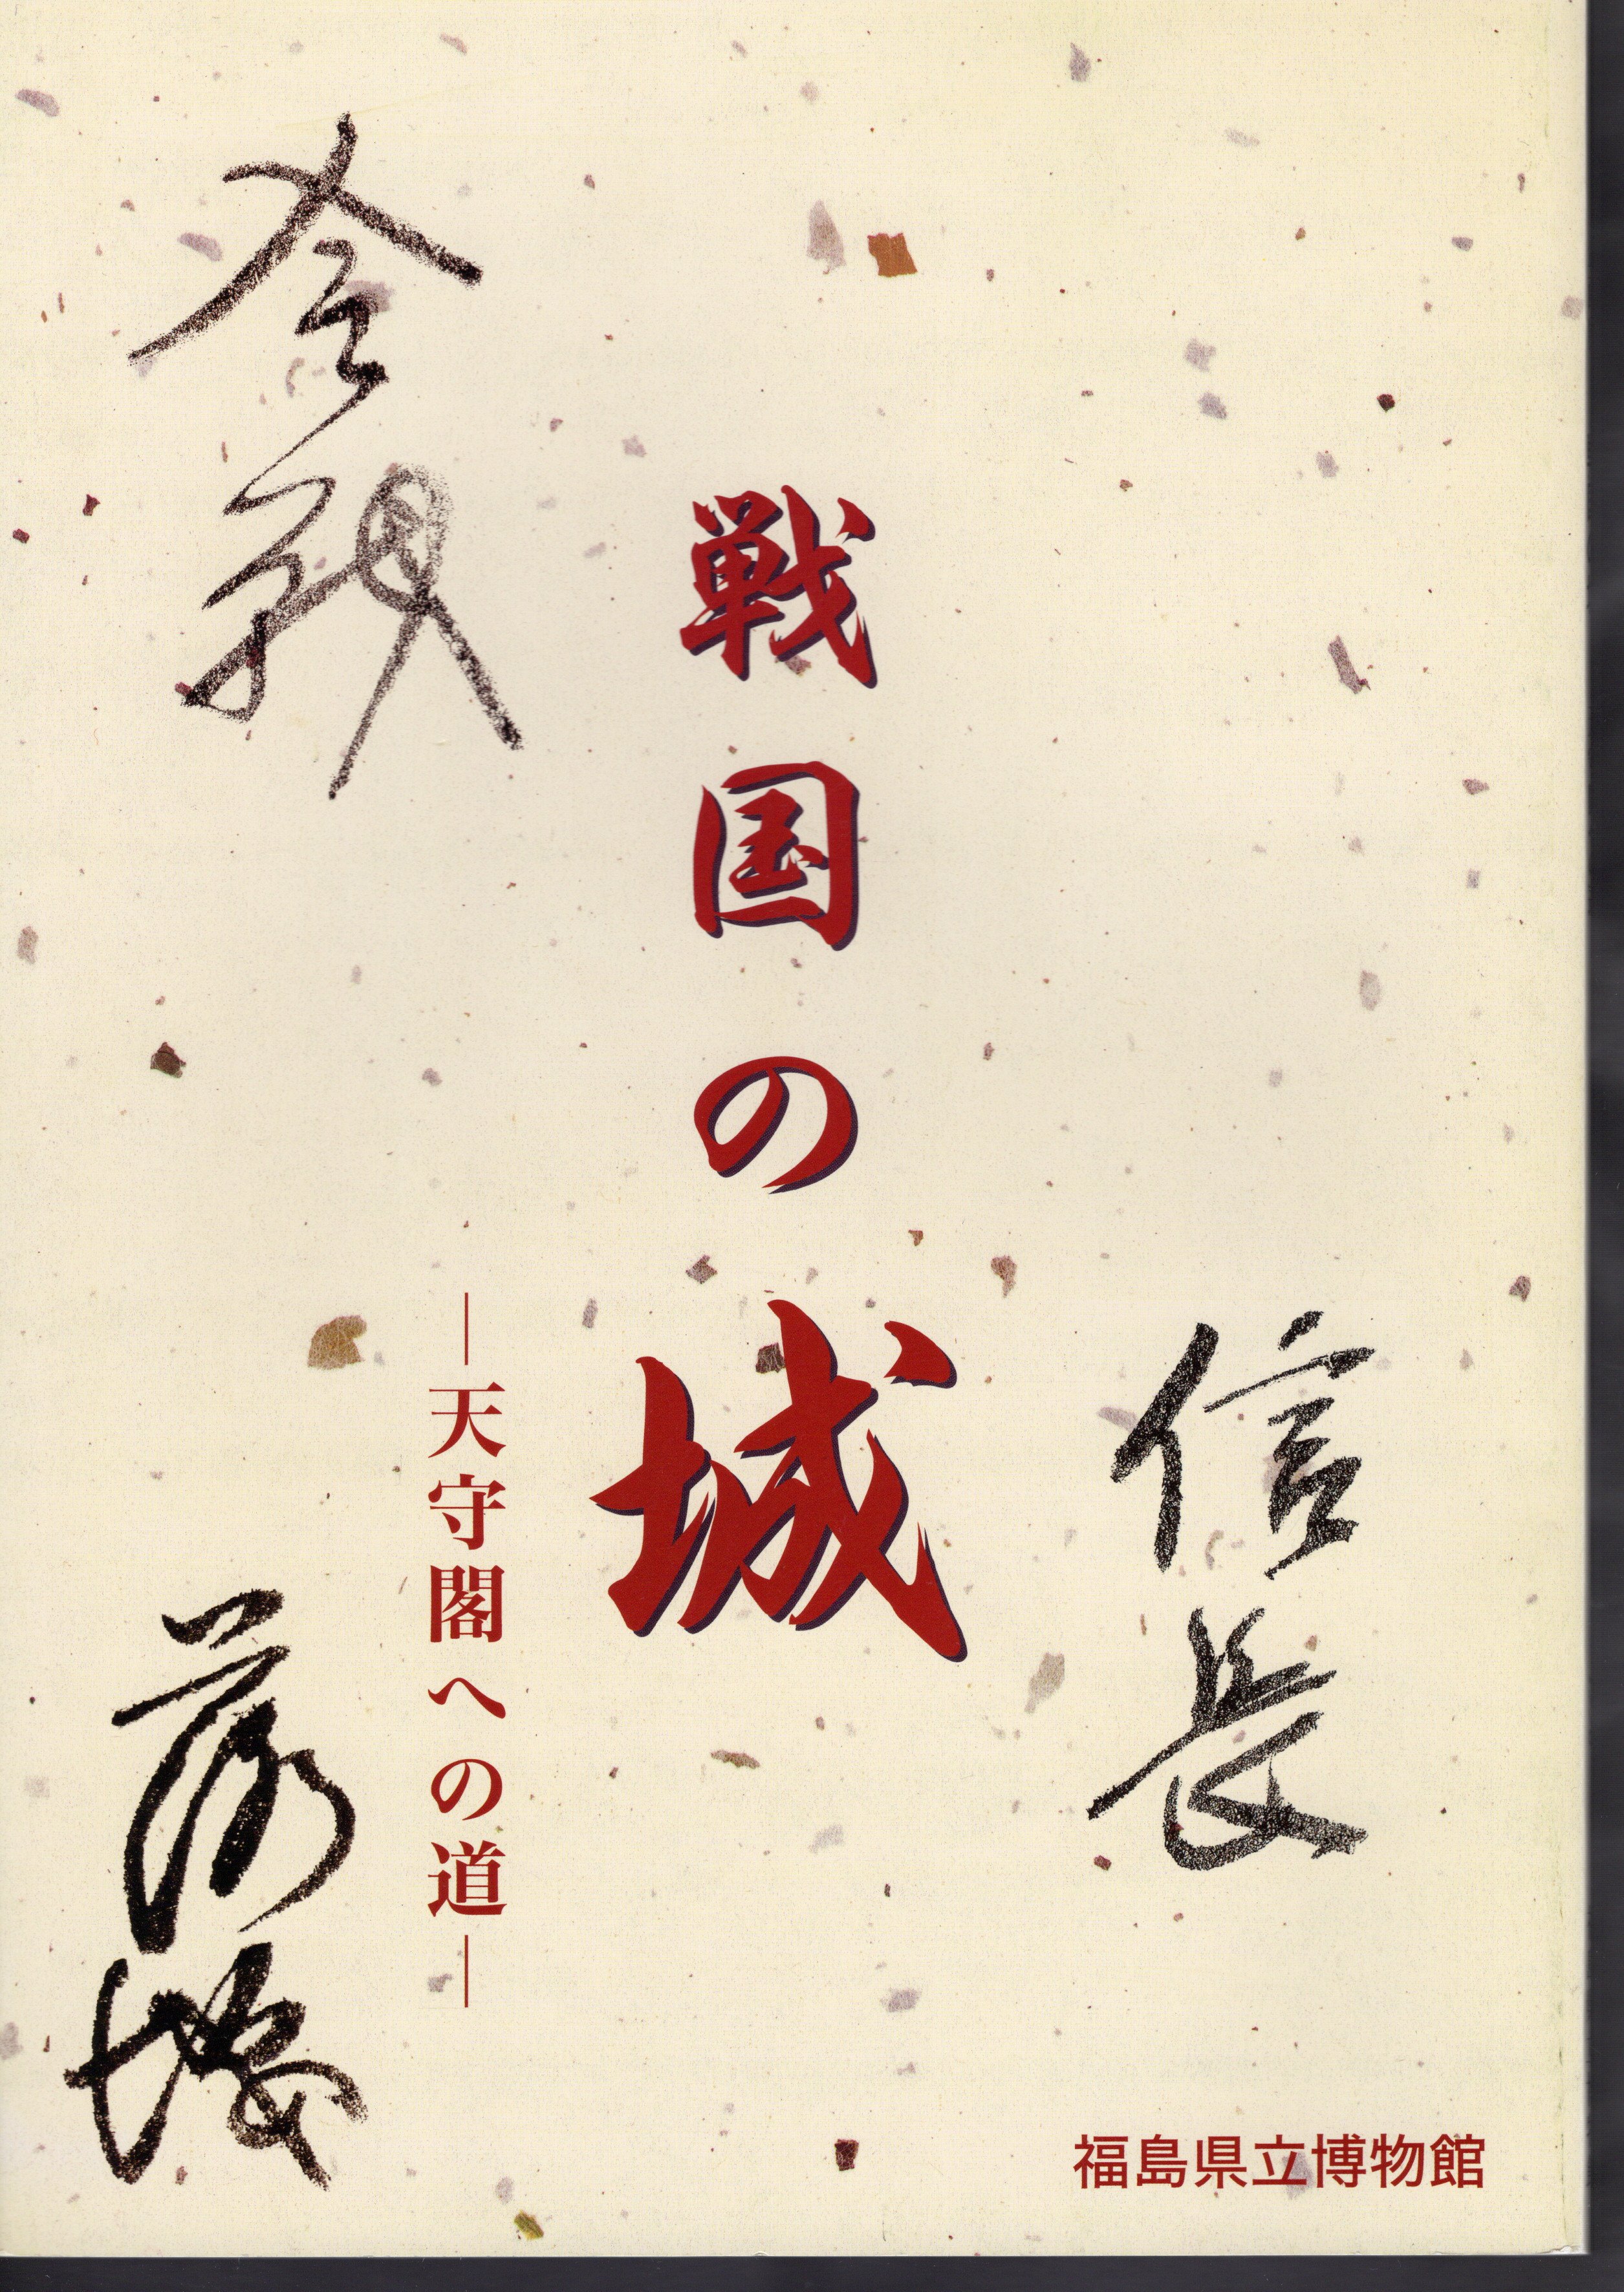 信長
戦国の城
―天守閣への道―
合戦
落城
福島県立博物館